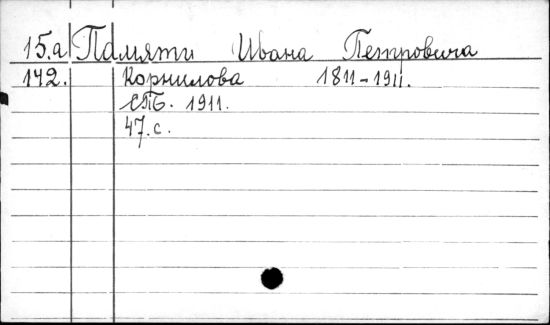 15.a Памяти Ивана Петровича
142. Корнилова 1811-1911.
СПБ. 1911.
47.с.